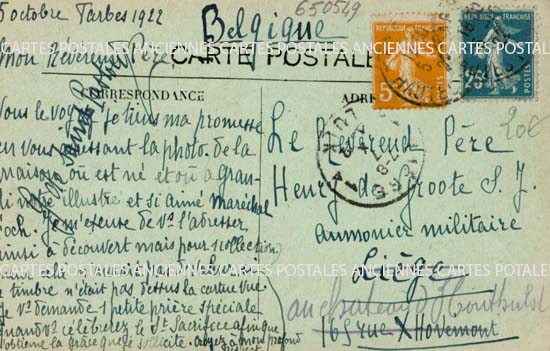 5 octobre Tarbes 1922
Belgique
650549
Mon Révérend Père
CARTE POSTALE
CORRESPONDANCE
ADR
REPUBLIQUE FRANÇAISE
5c
REPUBLIQUE FRANÇAISE
25
20€
Vous le voyez je tiens ma promesse
en vous adressant la photo de la
maison où est né et où a gran-
di notre illustre et si aimé Maréchal
Foch. Je m'excuse de vs l'adresser
ainsi à découvert mais pour collection
le timbre n'était pas dessus la carte vue
Je vs demande 1 petite prière spéciale
quand vs célébrerez le St Sacrifice afin que
j'obtienne la grâce que je sollicite. Croyez à mon profond
Le Révérend Père
Henry de Groote S. J.
aumonier militaire
Liège
au chateau d'Houthulst
165 rue Xhovemont
CARTES POSTALES ANCIENNES CARTES POSTALES ANCIENNES CARTES POSTALES